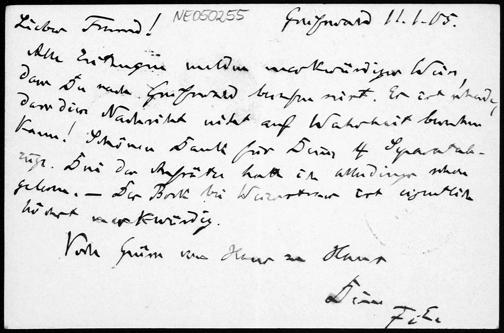 Lieber Freund! NE050255 Greifswald 11.1.05.
Alle Zeitungen melden merkwürdiger Weise,
dass Du nach Greifswald berufen wirst. Es ist schade,
dass diese Nachricht nicht auf Wahrheit beruhen
kann! Schönen Dank für Deine 4 Separatab-
züge. Drei der Aufsätze hatte ich allerdings schon
gelesen. — Der Bock bei ist eigentlich
höchst merkwürdig.
Viele Grüsse von Haus zu Haus
Dein